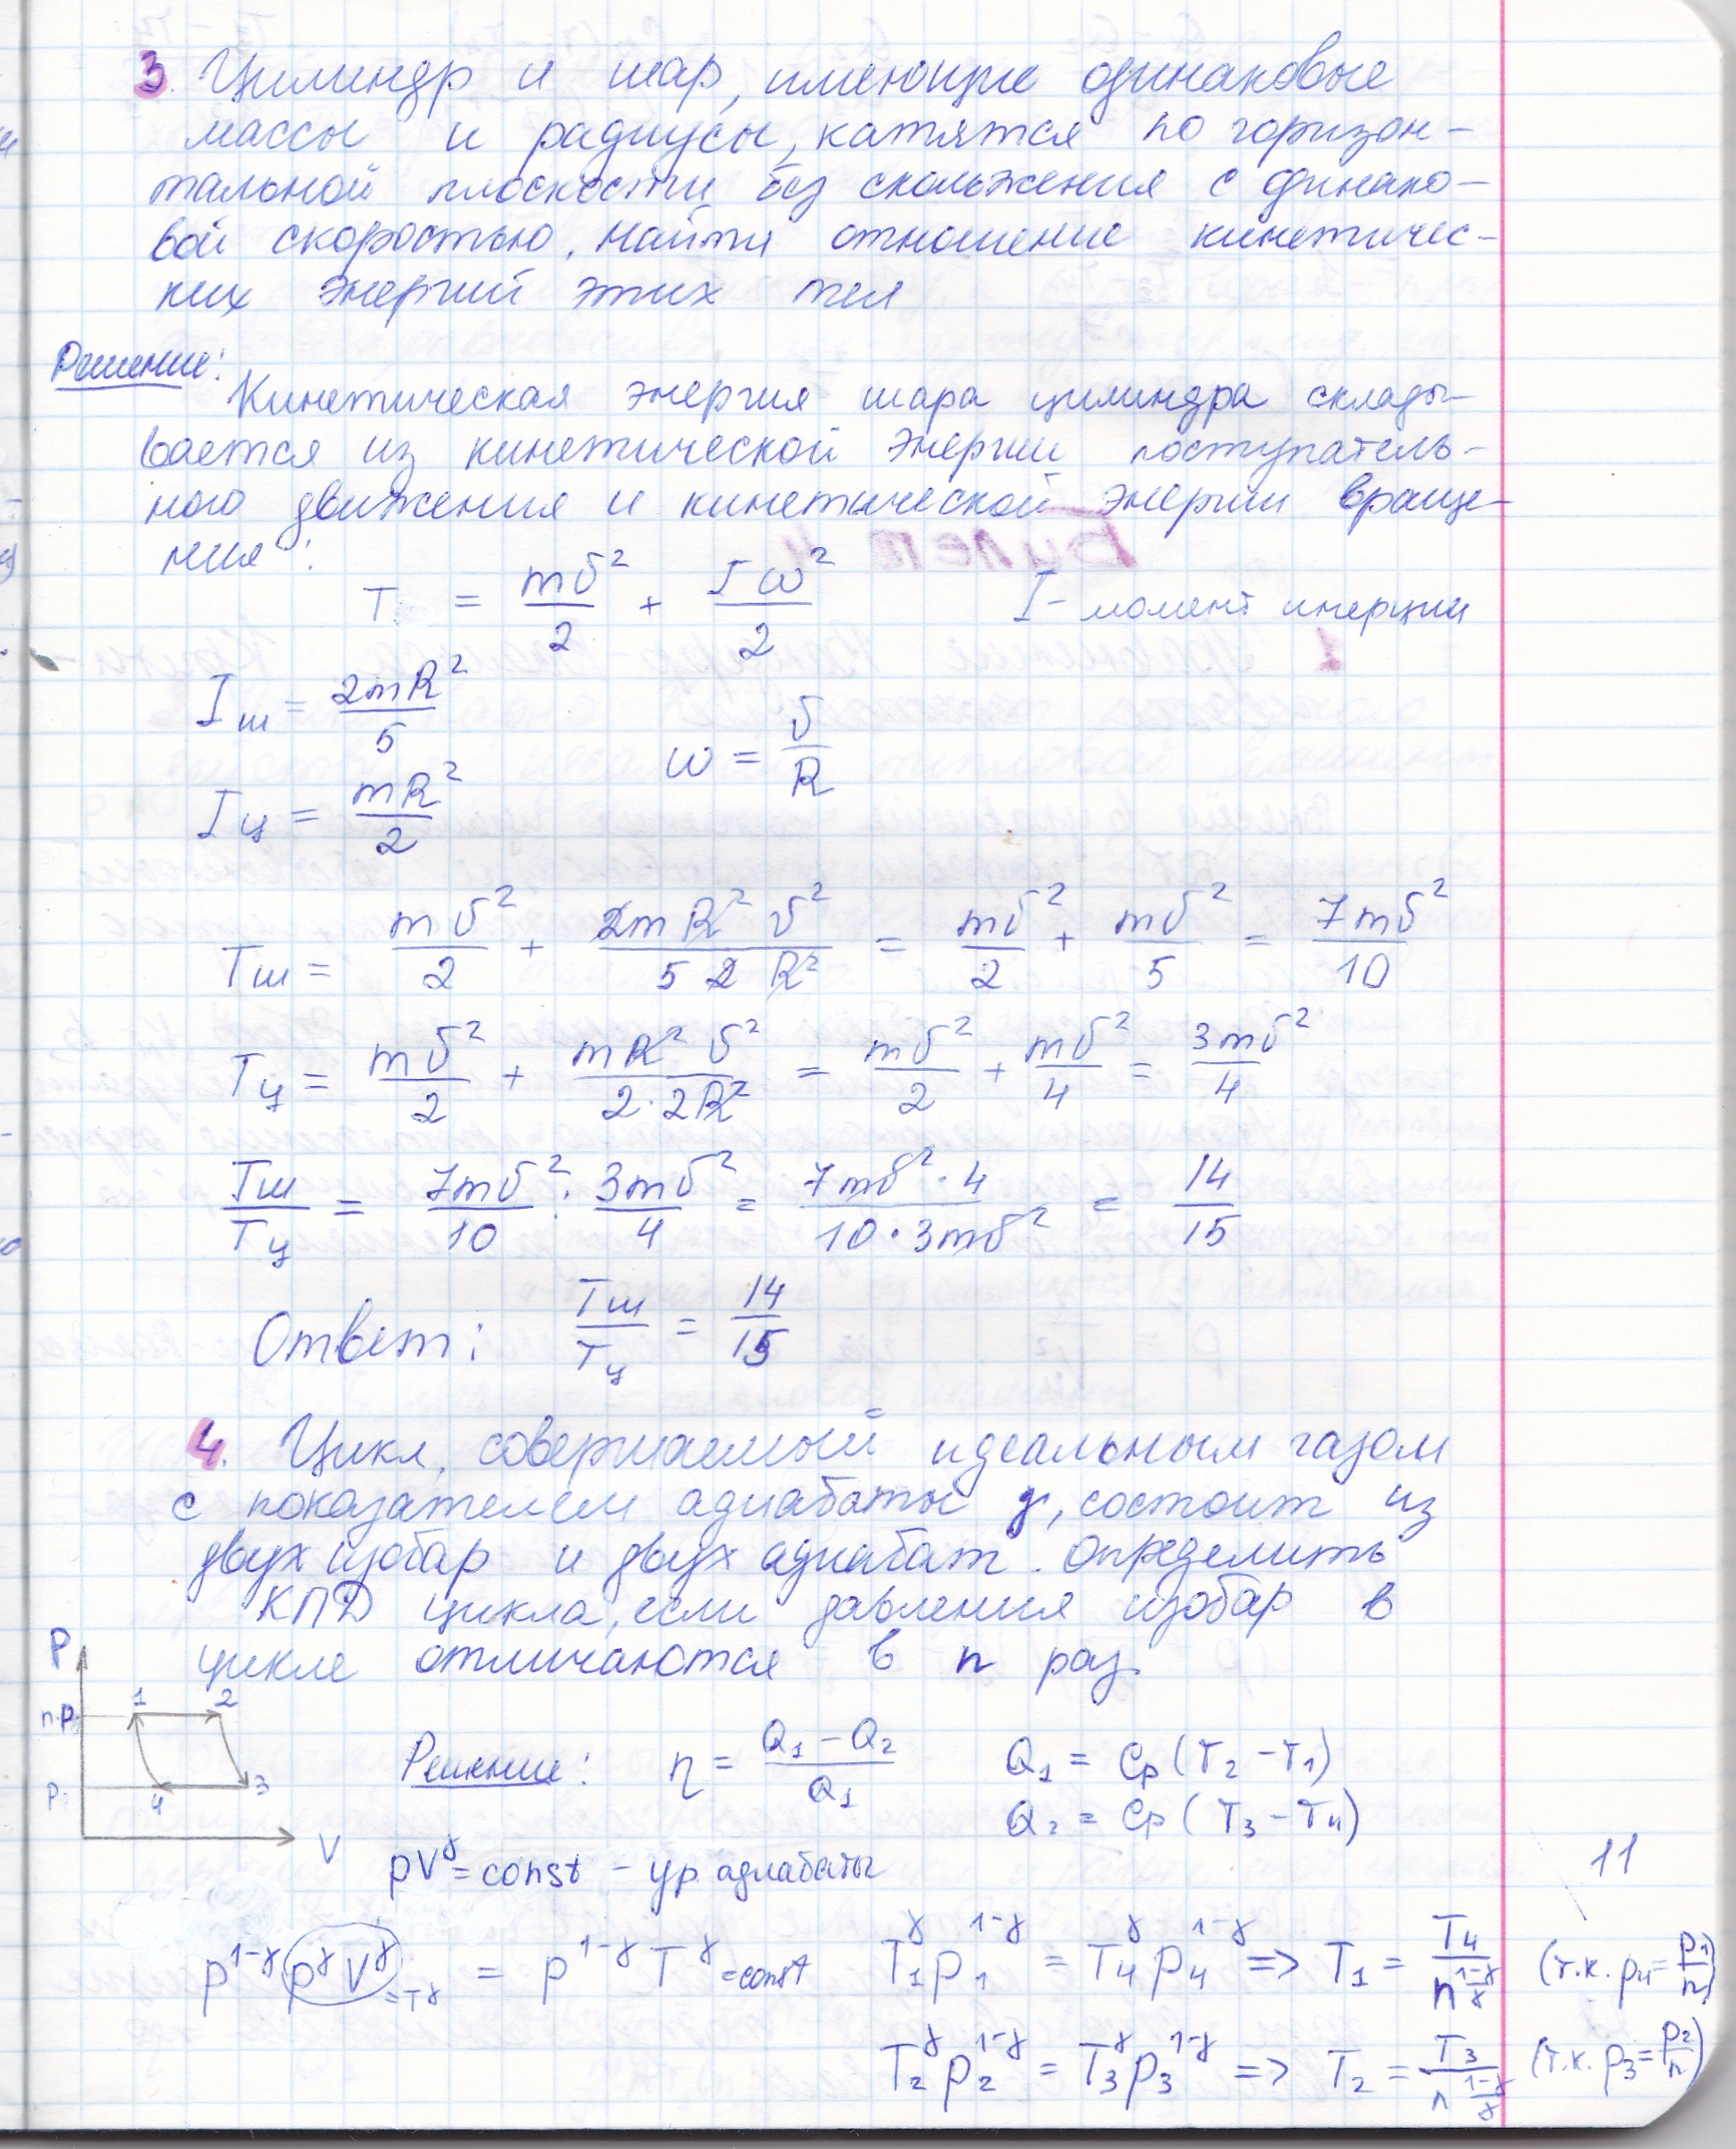 3. Цилиндр и шар, имеющие одинаковые
массы и радиусы, катятся по горизон-
тальной плоскости без скольжения с одинако-
вой скоростью. Найти отношение кинетичес-
ких энергий этих тел
Решение:
Кинетическая энергия шара цилиндра склады-
вается из кинетической энергии поступатель-
ного движения и кинетической энергии враще-
ния:
T = mυ²/2 + Iω²/2 I - момент инерции
Iш = 2mR²/5
ω = υ/R
Iц = mR²/2
Tш = mυ²/2 + 2mR²υ²/(5 2 R²) = mυ²/2 + mυ²/5 = 7mυ²/10
Tц = mυ²/2 + mR²υ²/(2·2R²) = mυ²/2 + mυ²/4 = 3mυ²/4
Tш/Tц = 7mυ²/10 : 3mυ²/4 = 7mυ²·4/(10·3mυ²) = 14/15
Ответ: Tш/Tц = 14/15
4. Цикл, совершаемый идеальным газом
с показателем адиабаты γ, состоит из
двух изобар и двух адиабат. Определить
КПД цикла, если давления изобар в
цикле отличаются в n раз.
P
1 2
n·p
p
4 3
V
Решение: η = (Q₁ - Q₂)/Q₁ Q₁ = Cp(T₂ - T₁)
Q₂ = Cp(T₃ - T₄)
pV^γ = const - ур адиабаты
11
p^(1-γ) p^γ V^γ = p^(1-γ) T^γ = const
=T^γ
T₁^γ p₁^(1-γ) = T₄^γ p₄^(1-γ) => T₁ = T₄/n^((1-γ)/γ) (т.к. p₄ = p₁/n)
T₂^γ p₂^(1-γ) = T₃^γ p₃^(1-γ) => T₂ = T₃/n^((1-γ)/γ) (т.к. p₃ = p₂/n)